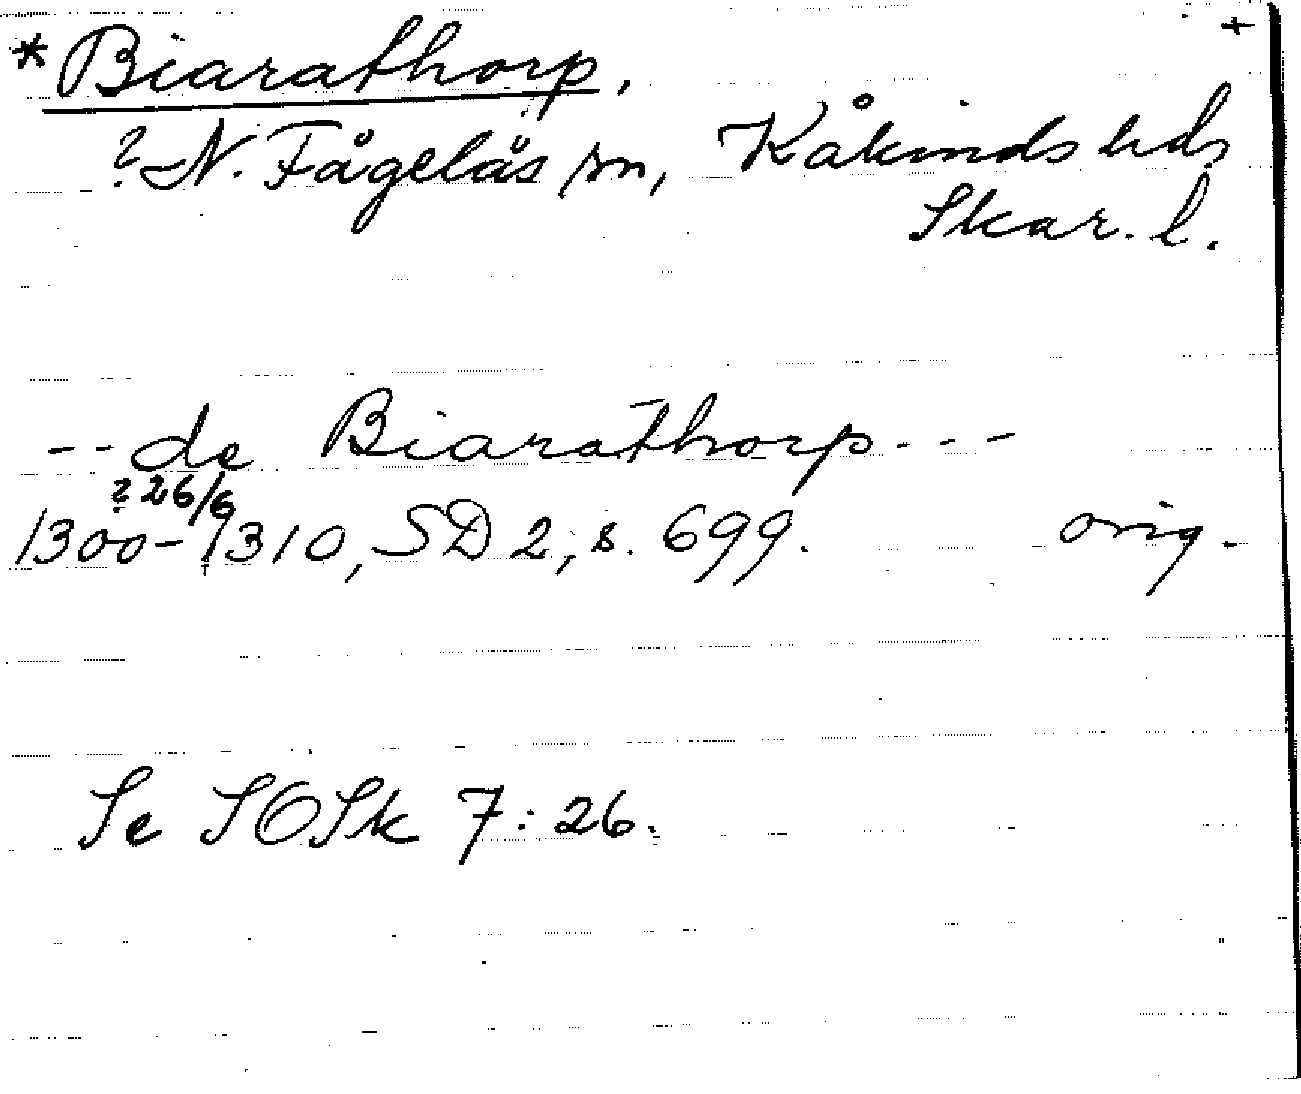 +
*Biarathorp.
? N. Fågelås sn, Kåkinds hd,
Skar. l.
--de Biarathorp---
? 26/6
1300-1310, SD 2, s. 699. orig.
Se SOSk 7:26.